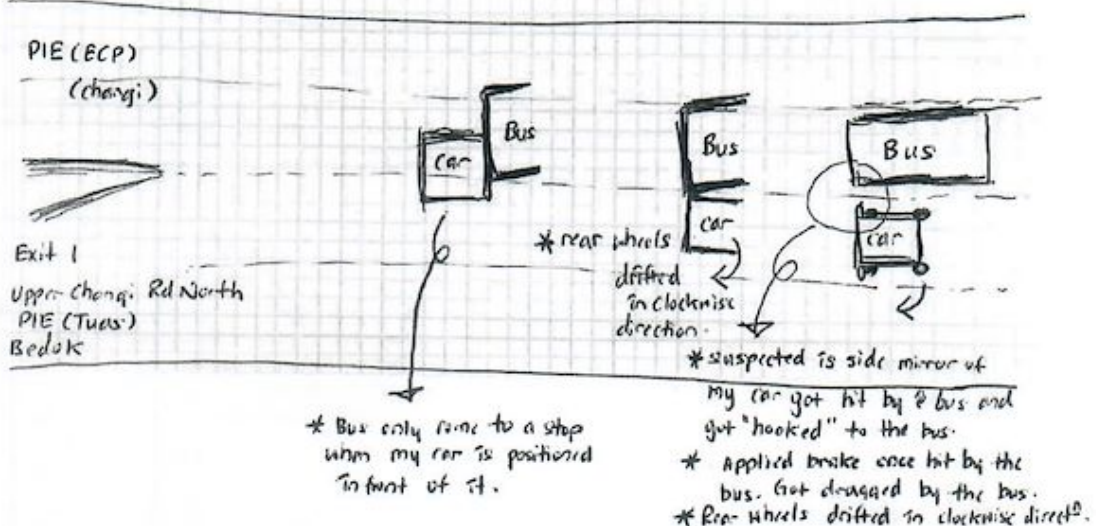 PIE (ECP)
(changi)
Bus
car
Bus
car
Bus
car
Exit 1
Upper Changi Rd North
PIE (Tuas)
Bedok
* rear wheels
drifted
in clockwise
direction.
* Bus only came to a stop
when my car is positioned
in front of it.
* suspected is side mirror of
my car got hit by bus and
got "hooked" to the bus.
* Applied brake once hit by the
bus. Got dragged by the bus.
* Rear wheels drifted in clockwise directn.